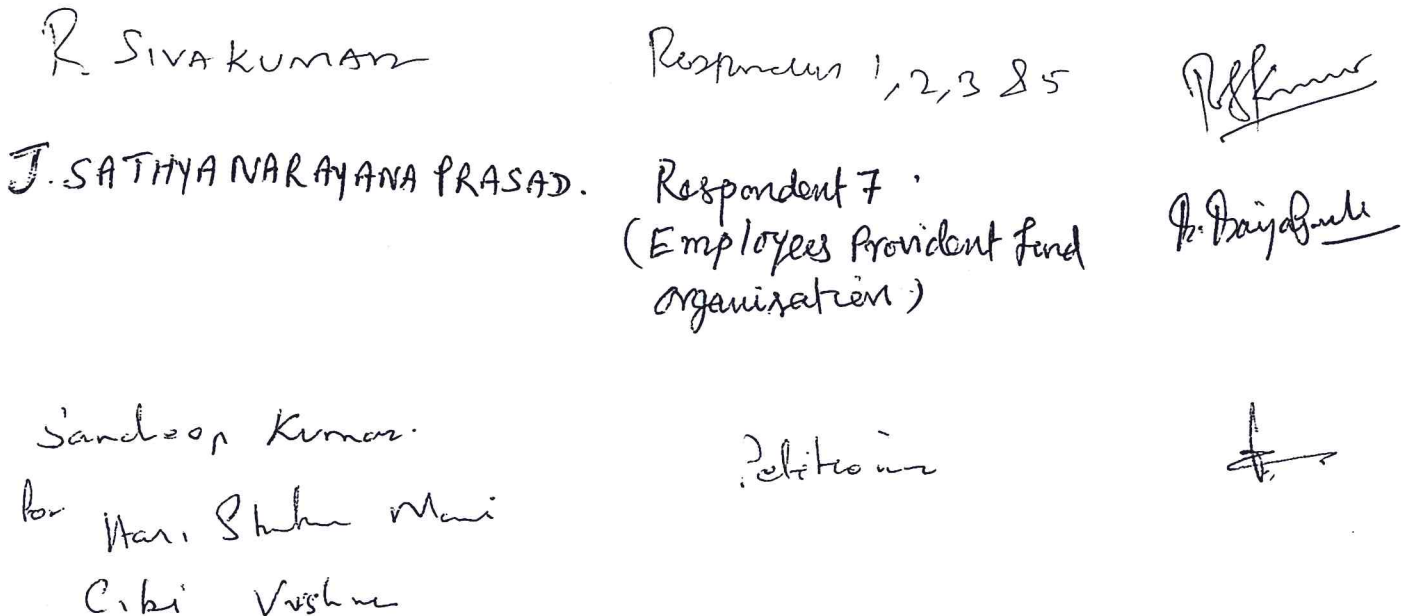 R. SIVAKUMAR Respondents 1, 2, 3 & 5
J. SATHYANARAYANA PRASAD. Respondent 7.
(Employees Provident fund
organisation)
Sandeep Kumar. Petitioner
for Hari Mani
Cibi Vishnu